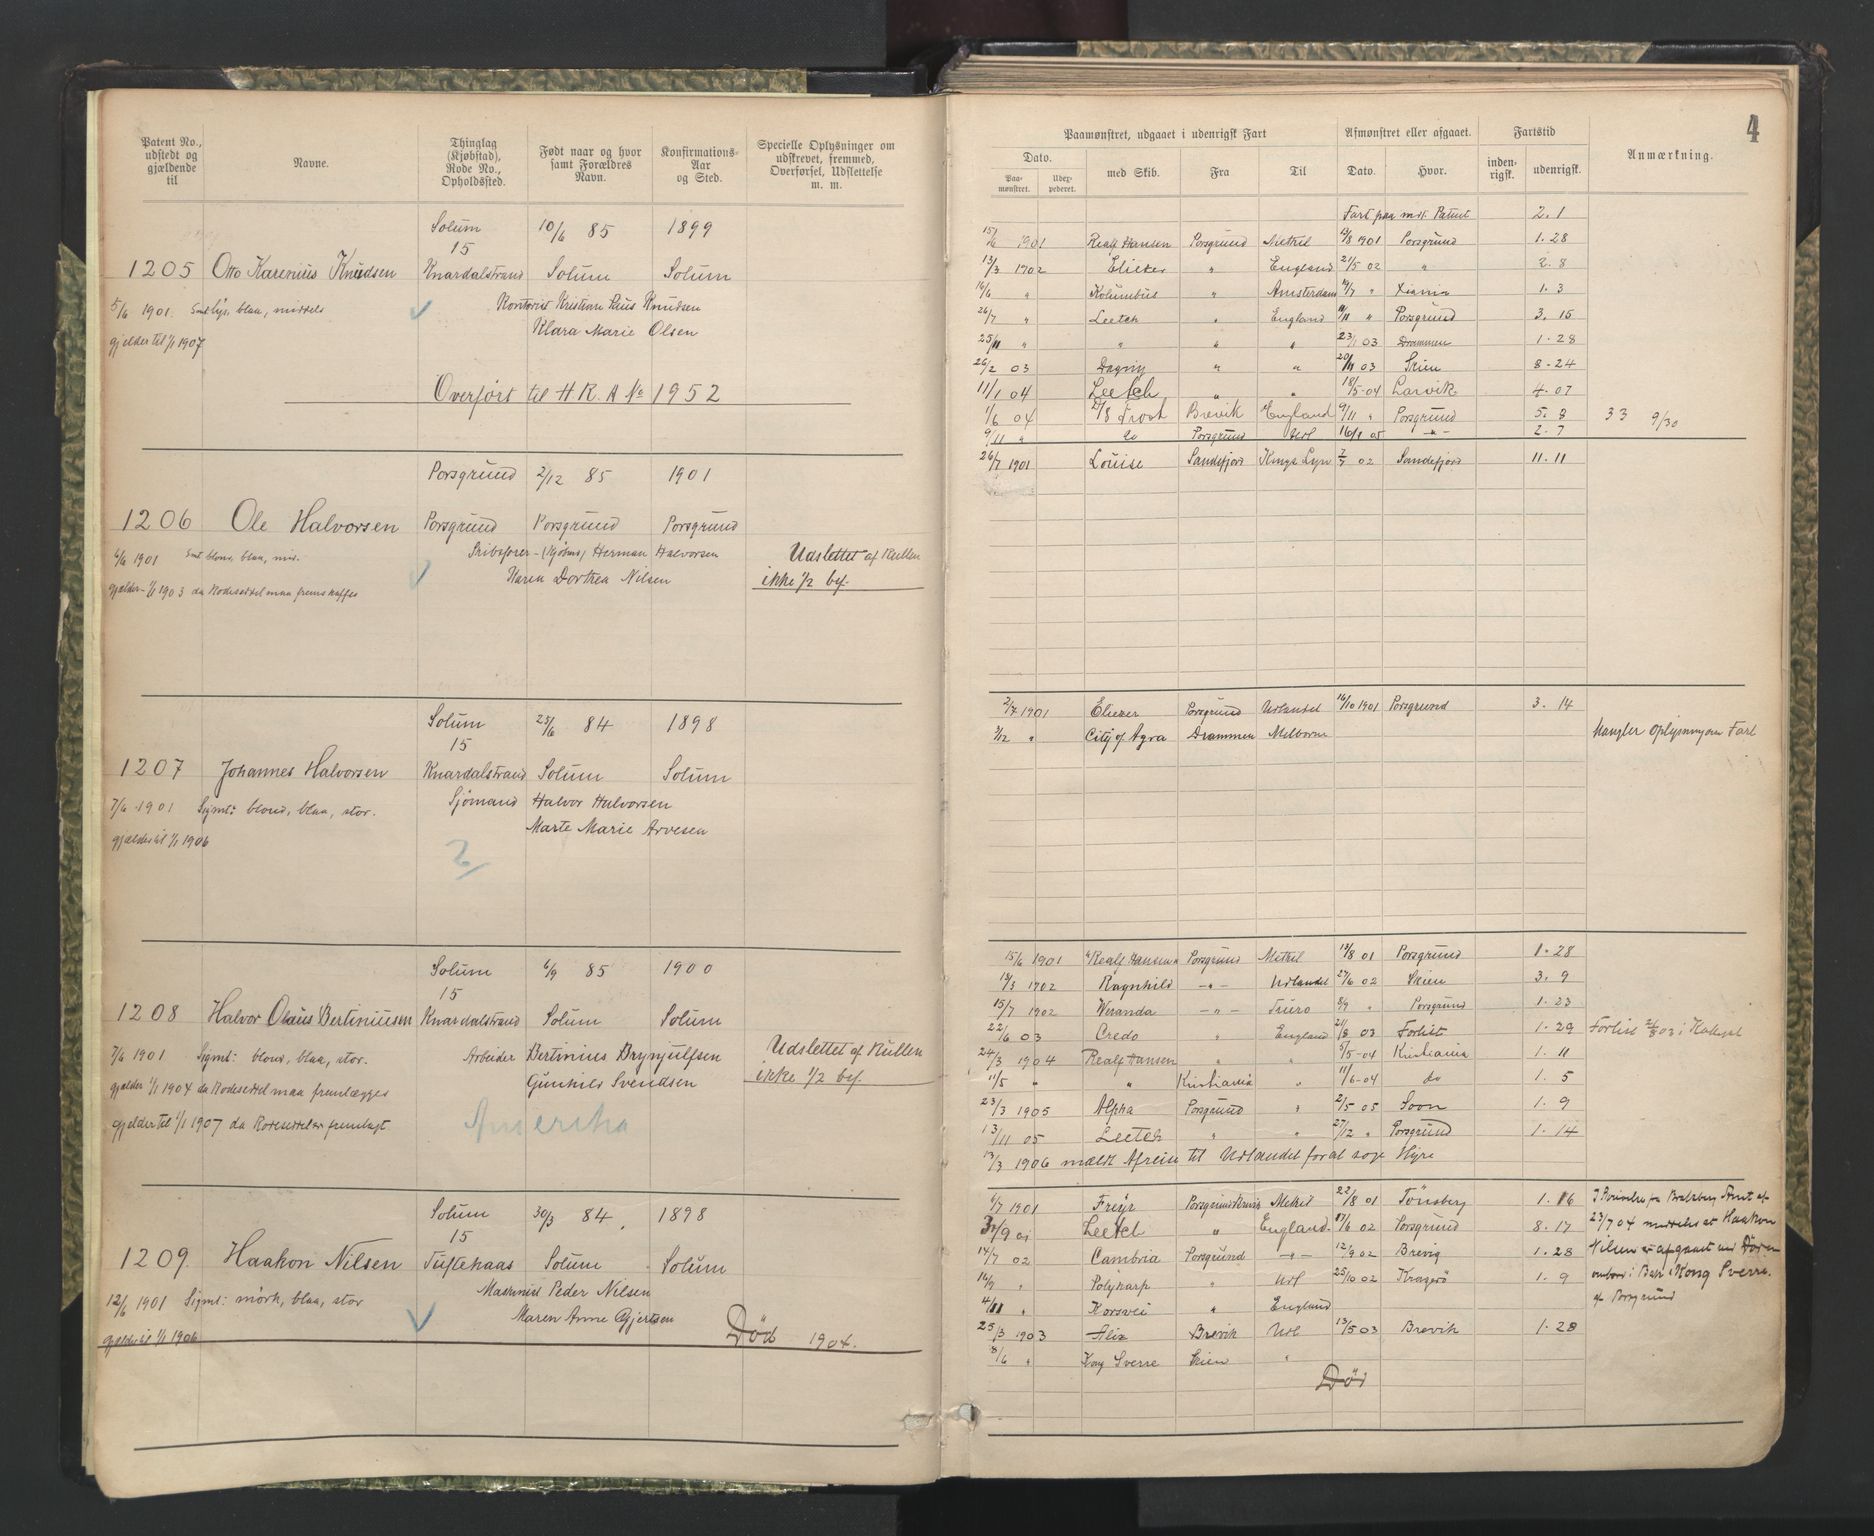 Patent No., udstedt og gjældende til
Navne.
Thinglag (Kjøbstad), Rode No., Opholdssted.
Født naar og hvor samt Forældres Navn.
Konfirmations-Aar og Sted.
Specielle Oplysninger om udskrevet, fremmed, Overførsel, Udslettelse m. m.
Solum 10/6 85 1899
15
1205 Otto Karenius Knudsen Knardalstrand Solum Solum
5/6 1901. blaa, middels Kontorist Kristian Knudsen
gjelder til 1/1 1907 Klara Marie Olsen
Overført til H R. A No 1952
Porsgrund 2/12 85 1901
1206 Ole Halvorsen Porsgrund Porsgrund Porsgrund
6/6 1901 blond, blaa, mid. Skibsfører Herman Halvorsen Udslettet af Rullen
gjælder 1/1 1903 da Rodeseddel maa fremskaffes Karen Dortea Nilsen ikke 1/2 bef.
Solum 23/6 84 1898
15
1207 Johannes Halvorsen Knardalstrand Solum Solum
7/6 1901 Signt: blond, blaa, stor. Sjømand Halvor Halvorsen
gjælder til 1/1 1906 Marte Marie Arvesen
Solum 6/9 85 1900
15
1208 Halvor Olaus Bertiniusen Knardalstrand Solum Solum
7/6 1901 Signt: blond, blaa, stor. Arbeider Bertinius Brynjulfsen Udslettet af Rullen
gjælder 1/1 1904 da Rodeseddel maa fremlægges Gunhild Svendsen ikke 1/2 bef.
gjelder til 1/1 1907 da Rodeseddel er fremlagt Amerika
Solum 30/3 84 1898
15
1209. Haakon Nilsen Tuftehaas Solum Solum
12/6 1901 Signt: mørk, blaa, stor Maskinist Peder Nilsen
gjælder til 1/1 1906 Maren Anne Gjertsen Død 1904.
4
Paamønstret, udgaaet i udenrigsk Fart
Afmønstret eller afgaaet.
Fartstid
Anmærkning.
Dato.
Paa-mønstret.
Udex-pederet.
med Skib.
Fra
Til
Dato.
Hvor.
inden-rigsk.
udenrigsk.
Fart paa mdl. Patent 2. 1
15/6 1901 Realf Hansen Porsgrund Methil 13/8 1901 Porsgrund 1. 28
13/3 1902 Eliezer " England 21/5 02 " 2. 8
16/6 " Kolumbus " Amsterdam 19/7 " Xiania 1. 3
26/7 " Leetch " England 11/11 " Porsgrund 3. 15
25/11 " " " " 23/1 03 Drammen 1. 28
26/2 03 Dagny " " 20/11 03 Skien 8-24
11/1 04 Leetch " " 18/5-04 Larvik 4. 07
1/6 04 D/S Frost Brevik England 9/11 " Porsgrund 5. 8 33 9/30
9/11 " do Porsgrund Udl 16/1 05 -"- 2. 7
26/7 1901 Louise Sandefjord Kings Lyn 7/7 02 Sandefjord 11. 11
2/7 1901 Eliezer Porsgrund Udlandet 16/10 1901 Porsgrund 3. 14
3/12 " City of Agra Drammen Melborne Mangler Oplysning om Fart
15/6 1901 "Realf Hansen" Porsgrund Methil 13/8 01 Porsgrund 1. 28
18/3 1902 Ragnhild -"- Udlandet 27/6 02 Skien 3. 9
15/7 1902 Weranda -"- 8/9 " Porsgrund 1. 23
22/6 03 Credo " England 21/8 03 Forlist 1. 29 Forlist 21/8 03 i
24/3 1904 Realf Hansen " " 5/5-04 Kristiania 1. 11
11/5 " " Kristiania " 11/6-04 do 1. 5
23/3 1905 Alpha Porsgrund " 2/5 05 Soon 1. 9
13/11 05 Leetch " " 27/12 " Porsgrund 1. 14
13/3 1906 mældt Afreise til Udlandet for at søge Hyre
6/7 1901 Freyr Porsgrund Methil 22/8 01 Tönsberg 1. 16 I Skrivelse fra Bratsberg Amt af
30/9 01 Leetch " England 17/6 02 Porsgrund 8. 17 23/7 04 meddeles at Haakon
14/7 02 Cambria Porsgrund -"- 12/9 02 Brevig 1. 28 Nilsen er afgaaet ved Døden
16/9 " Polykarp " Udl 25/10 02 Kragerö 1. 9 ombord i Bark Kong Sverre.
4/11 " Korsvei " England af Porsgrund
25/3 1903 Alix Brevik Udl 13/5 03 Brevik 1. 28
8/6 " Kong Sverre Skien "
Död